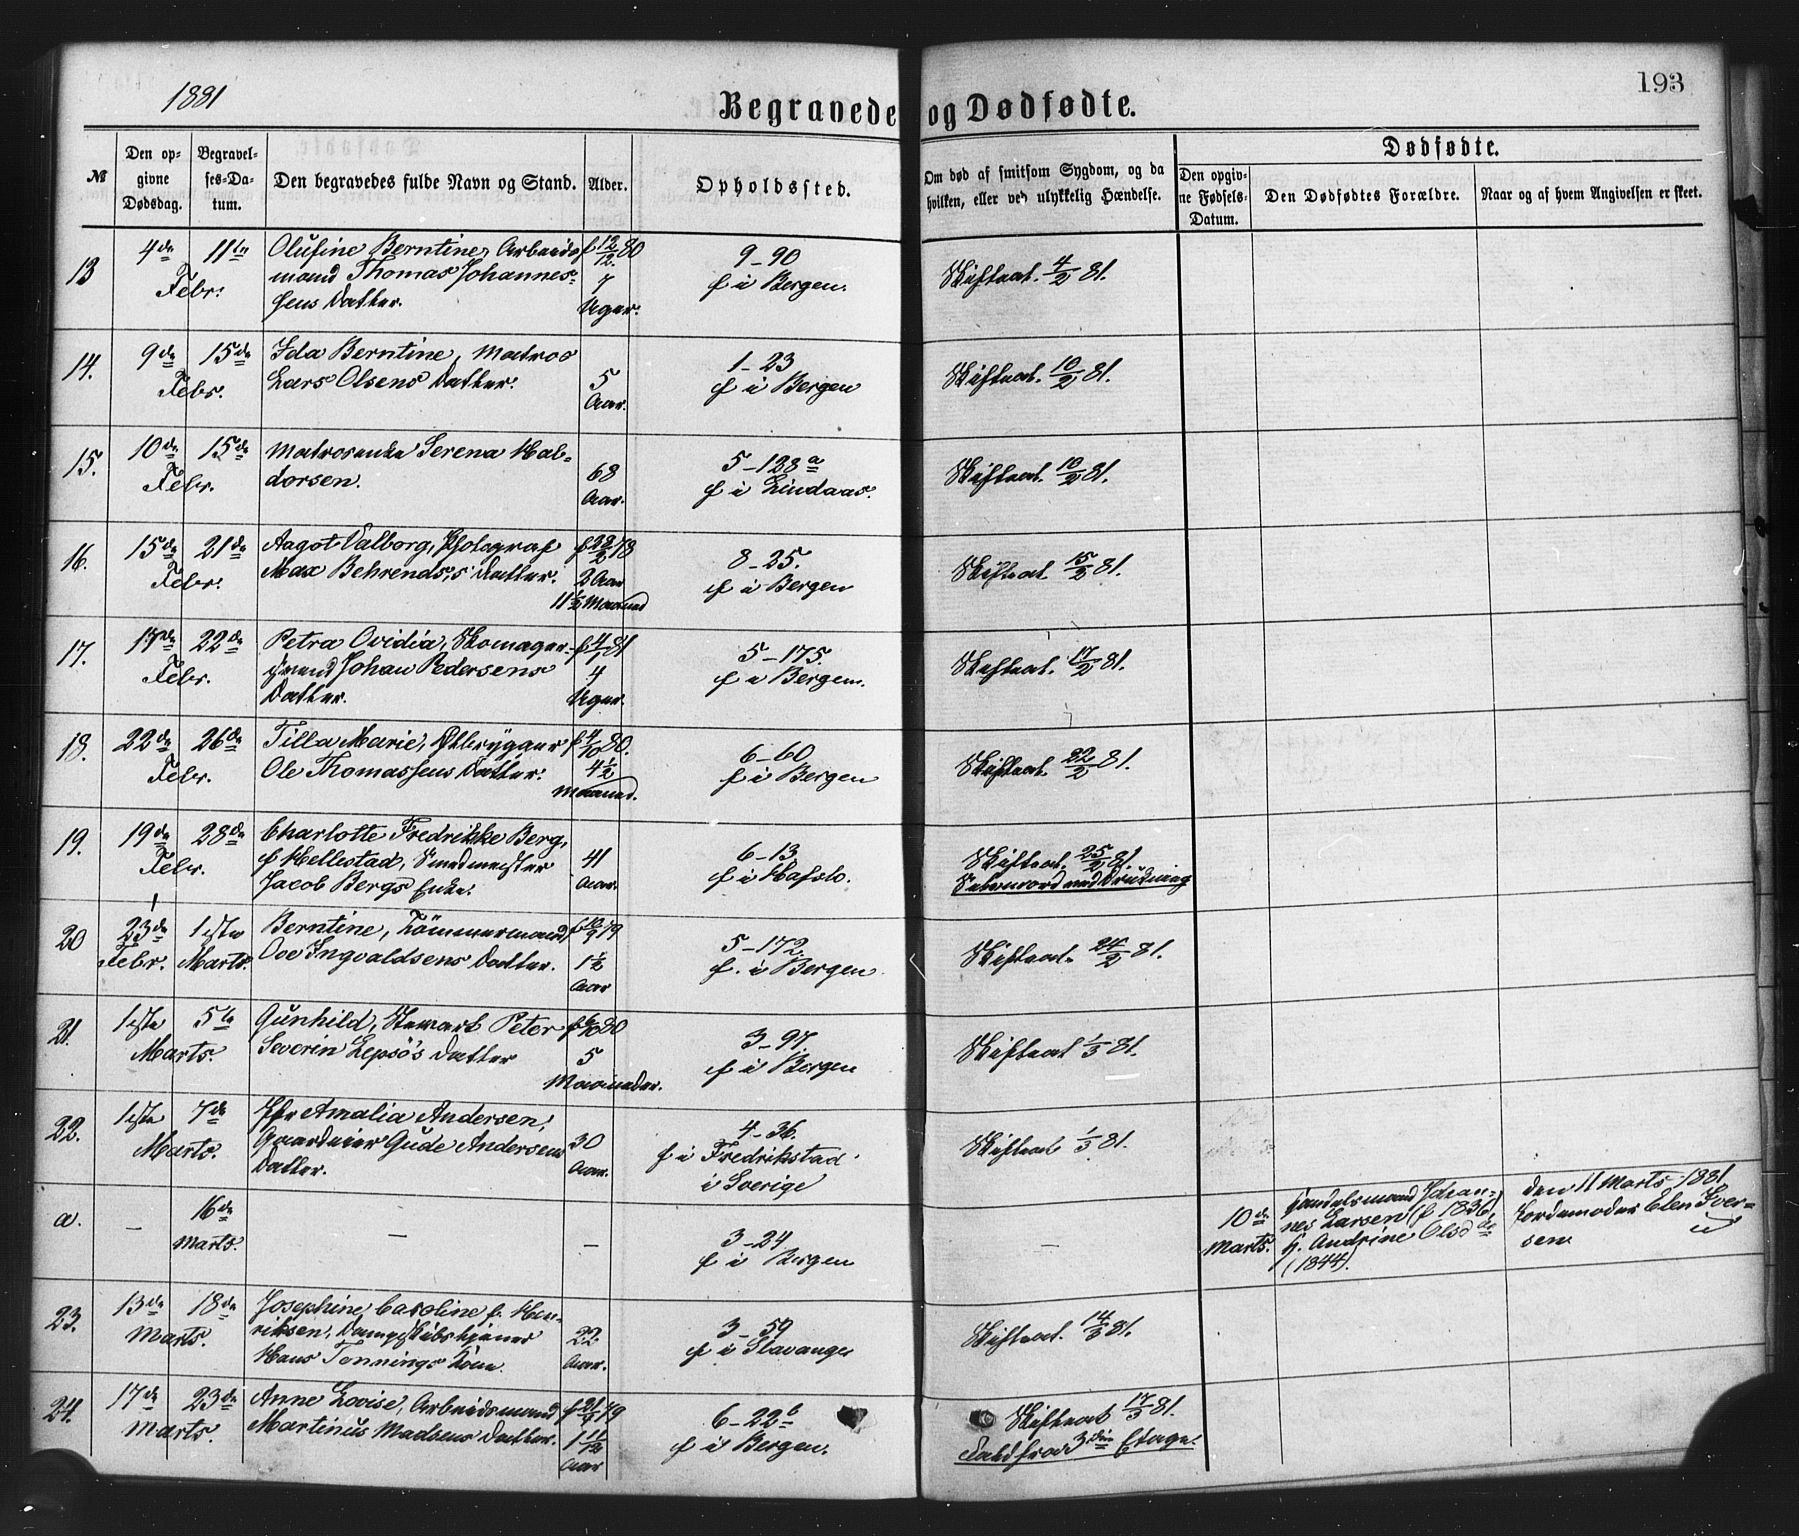 1881
193
Begravede og Dødfødte.
№
Den opgivne Dødsdag.
Begravelses-Datum.
Den begravedes fulde Navn og Stand.
Alder.
Opholdssted.
Om død af smitsom Sygdom, og da
hvilken, eller ved ulykkelig Hændelse.
Dødfødte.
Den opgivne Fødsels-Datum.
Den Dødfødtes Forældre.
Naar og af hvem Angivelsen er skeet.
13
4de 11te Febr.
Olufine Berntine, Arbeids-
mand Thomas Johannes-
sens Datter.
f 12/12 80
7
Uger.
9-90
f i Bergen.
Skifteat. 4/2 81.
14.
9de 15de Febr.
Ida Berntine, Matros
Lars Olsens Datter.
5
Aar.
1-23
f i Bergen
Skifteat. 10/2 81.
15.
10de 15de Febr.
Matrosenke Serena Hal-
dorsen.
68
Aar.
5-128a
f i Lindaas.
Skifteat. 10/2 81.
16.
15de 21de Febr.
Aagot Valborg, Photograf
Max Behrends's Datter.
f 28/2 78
2 Aar
11½ Maaned
8-25.
f i Bergen
Skifteat. 15/2 81.
17.
17de 22de Febr.
Petra Ovidia, Skomager-
svend Johan Pedersens
Datter.
f 4/1 81
4
Uger.
5-175.
f i Bergen.
Skifteat. 17/2 81.
18.
22de 26de Febr.
Tilla Marie, Ølbrygger
Ole Thomassens Datter.
f 4/10 80.
4½
Maaned.
6-60
f i Bergen
Skifteat. 22/2 81.
19.
19de 28de Febr.
Charlotte Fredrikke Berg,
f Hellestad, Smedmester
Jacob Bergs Enke.
41
Aar.
6-13
f i Hafslo.
Skifteat. 25/2 81.
Selvmord ved Drukning
20
23de Febr. 1ste Marts.
Berntine, Tömmermand
Ove Ingvaldsens Datter.
f 10/9 79
1½
Aar
5-172
f. i Bergen
Skifteat. 24/2 81.
21.
1ste 5te Marts.
Gunhild, Stewart Peter
Severin Lepsö's Datter
f 6/10 80
5
Maaneder.
3-97.
f i Bergen
Skifteat 1/3 81.
22.
1ste 7de Marts.
Amalia Andersen,
Gaardeier Gude Andersens
Datter.
30
Aar.
4-36.
f i Fredrikstad
i Sverige
Skifteat 1/3 81.
a.
—
16de
Marts.
—
—
3-24
f i Bergen
—
10de
Marts.
Handelsmand Johan-
nes Larsen (f 1836)
H. Andrine Olsd
(1844).
den 11 Marts 1881
Jordemoder Elen Iver-
sen
23.
13de 18de Marts.
Josephine Caroline f. Hen-
riksen, Dampskibstjener
Hans Tennings Kone.
22
Aar.
3-59
f i Stavanger
Skifteat. 14/3 81.
24.
17de 23de Marts.
Anne Lovise, Arbeidsmand
Martinus Madsens Datter.
f 21/4 79
1 11/12
Aar
6-22b
f i Bergen.
Skifteat 17/3 81.
Fald fra 3die Etage.